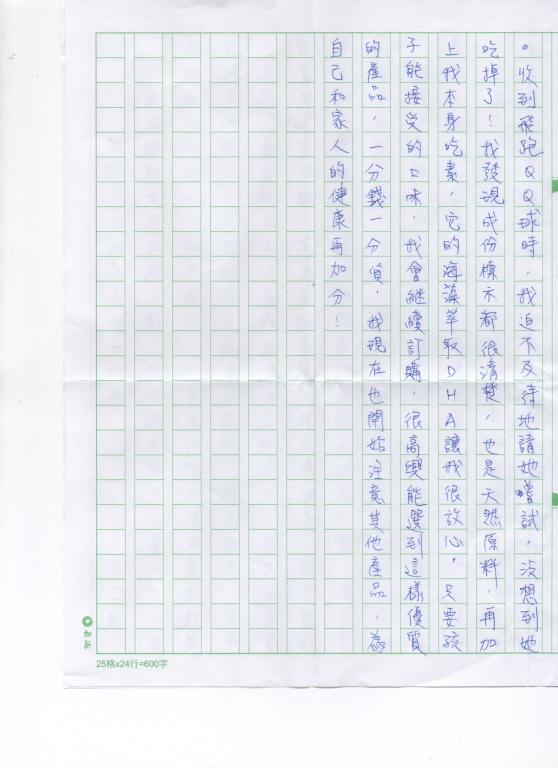 。收到飛跑QQ球時，我迫不及待地請她嚐試，沒想到她
吃掉了！我發現成份標示都很清楚，也是天然原料，再加
上我本身吃素，它的海藻萃取DHA讓我很放心。只要孩
子能接受的口味，我會繼續訂購，很高興能選到這樣優質
的產品，一分錢一分貨，我現在也開始注意其他產品，為
自己和家人的健康再加分！
加新
25格x24行=600字